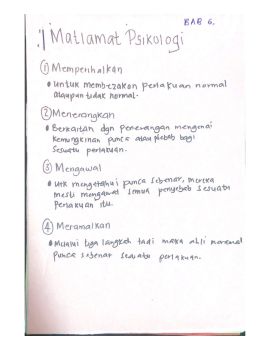 BAB 6.
Matlamat Psikologi
① Memperihalkan
• Untuk membezakan perlakuan normal
ataupun tidak normal.
② Menerangkan
• Berkaitan dgn penerangan mengenai
kemungkinan punca atau sebab bagi
sesuatu perlakuan.
③ Mengawal
• Utk mengetahui punca sebenar, mereka
mesti mengawal semua penyebab sesuatu
perlakuan itu.
④ Meramalkan
• Melalui tiga langkah tadi maka ahli
punca sebenar sesuatu perlakuan.